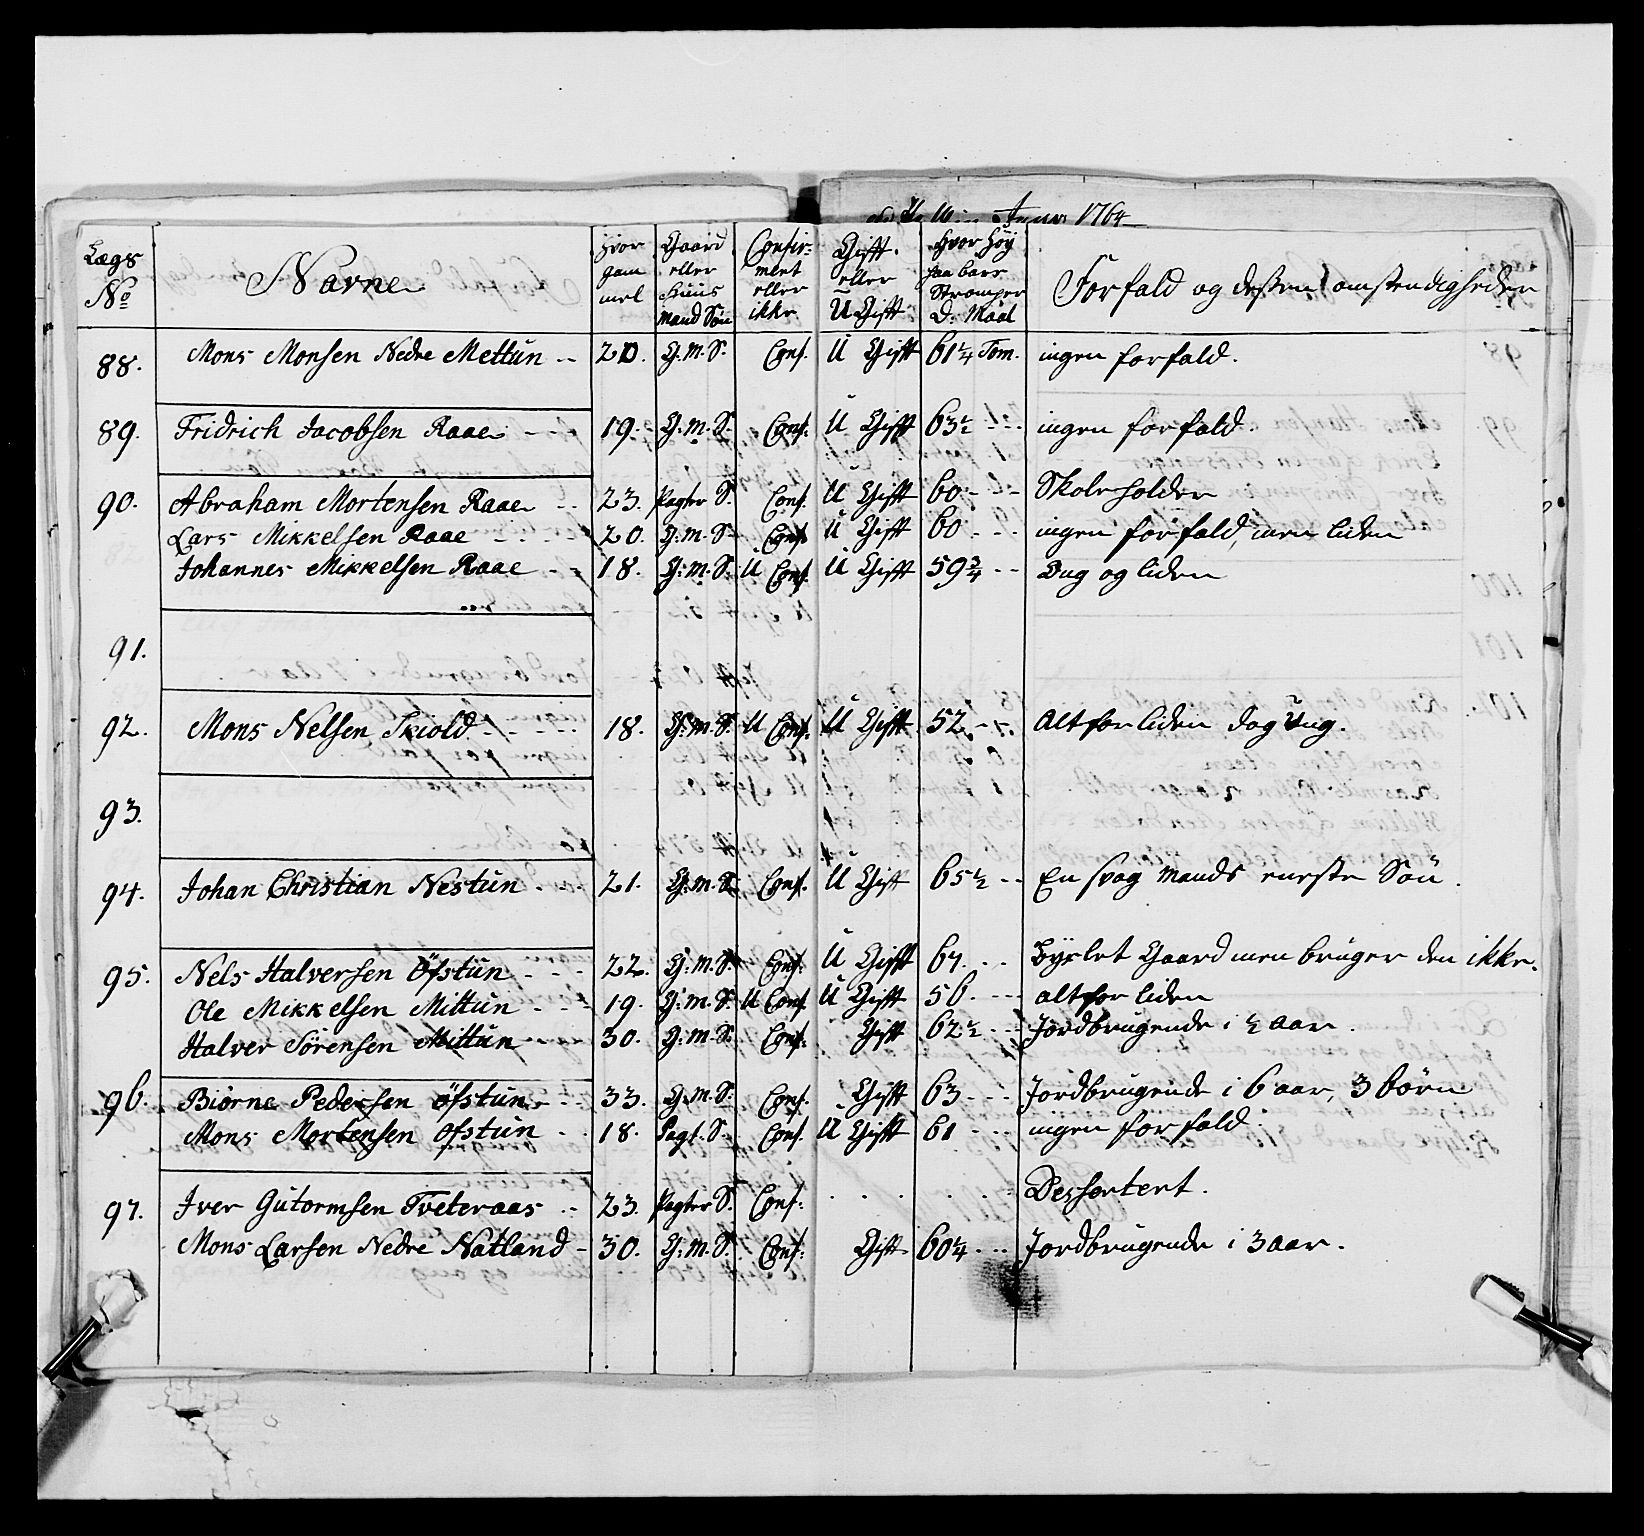 Anno 1764
Lægs No | Navne | Hvor gam mel | Gaard eller Huus Mand Søn | Confir- mert eller ikke | Gift eller U Gift | Hvor Høy paa bare Strømper D: Maal | Forfald og dessen omstendigheder
88. Mons Monsen Nedre Mettun -- 20. G. M. S. Conf. U Gift 61 1/4 Tom. ingen forfald.
89. Fridrich Jacobsen Raae - - - 19. G. M. S. Conf. U Gift 63 1/2 - - - ingen forfald.
90. Abraham Mortensen Raae - - 23. Pagter S. Conf. U Gift 60 - - - Skoleholder
Lars Mikkelsen Raae - - - 20. G. M. S. Conf. U Gift 60 - - - ingen forfald, men liden
Johannes Mikkelsen Raae - - 18. G. M. S. U Conf. U Gift 59 3/4 - - Ung og liden
91.
92. Mons Nelsen Skiold - - - - 18. G. M. S. U Conf. U Gift 52. - - Alt for liden dog Ung.
93.
94. Johan Christian Nestun - - 21. G. M. S. Conf. U Gift 65 1/2 - - En svag Mands eneste Søn.
95. Nels Halversen Öfstun - - - 22. G. M. S. Conf. U Gift 67. - - Gaard men bruger den ikke.
Ole Mikkelsen Mittun - - - 19. G. M. S. U Conf. U Gift 56. - - - alt for liden
Halver Sörensen Mittun - - 30. G. M. S. Conf. Gift 62 1/2 - - Jordbrugende i 1/2 aar.
96. Biörne Pedersen öfstun - - 33. G. M. S. Conf. Gift 63 - - - Jordbrugende i 6 aar, 3 börn
Mons Mortensen öfstun - - 18. Pagt. S. Conf. U Gift 61 - - - ingen forfald.
97. Iver Gutormsen Tveteraas - - 23. Pagter S. Conf. . . . . . . Dessertert.
Mons Larsen Nedre Natland - 30. G. M. S. Conf. Gift 60 1/4 - - - Jordbrugende i 3 aar.